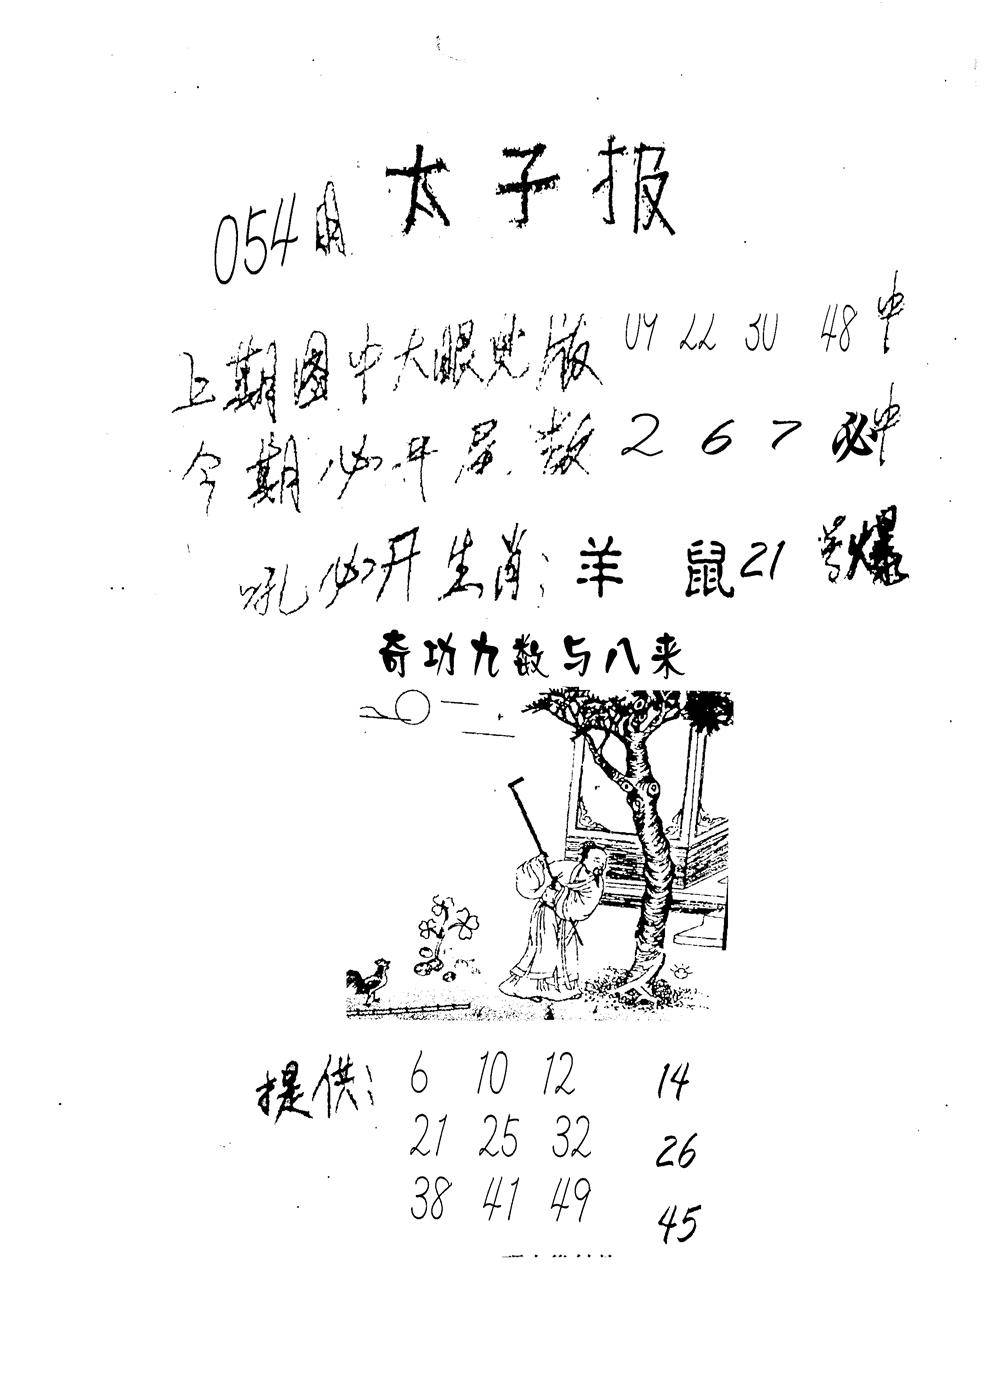 太子报
054期
上期图中大眼见版 09 22 30 48中
今期必开尾数 2 6 7 必中
吼必开生肖：羊 鼠 21 等爆
奇功九数与八来
提供： 6 10 12 14
21 25 32 26
38 41 49 45